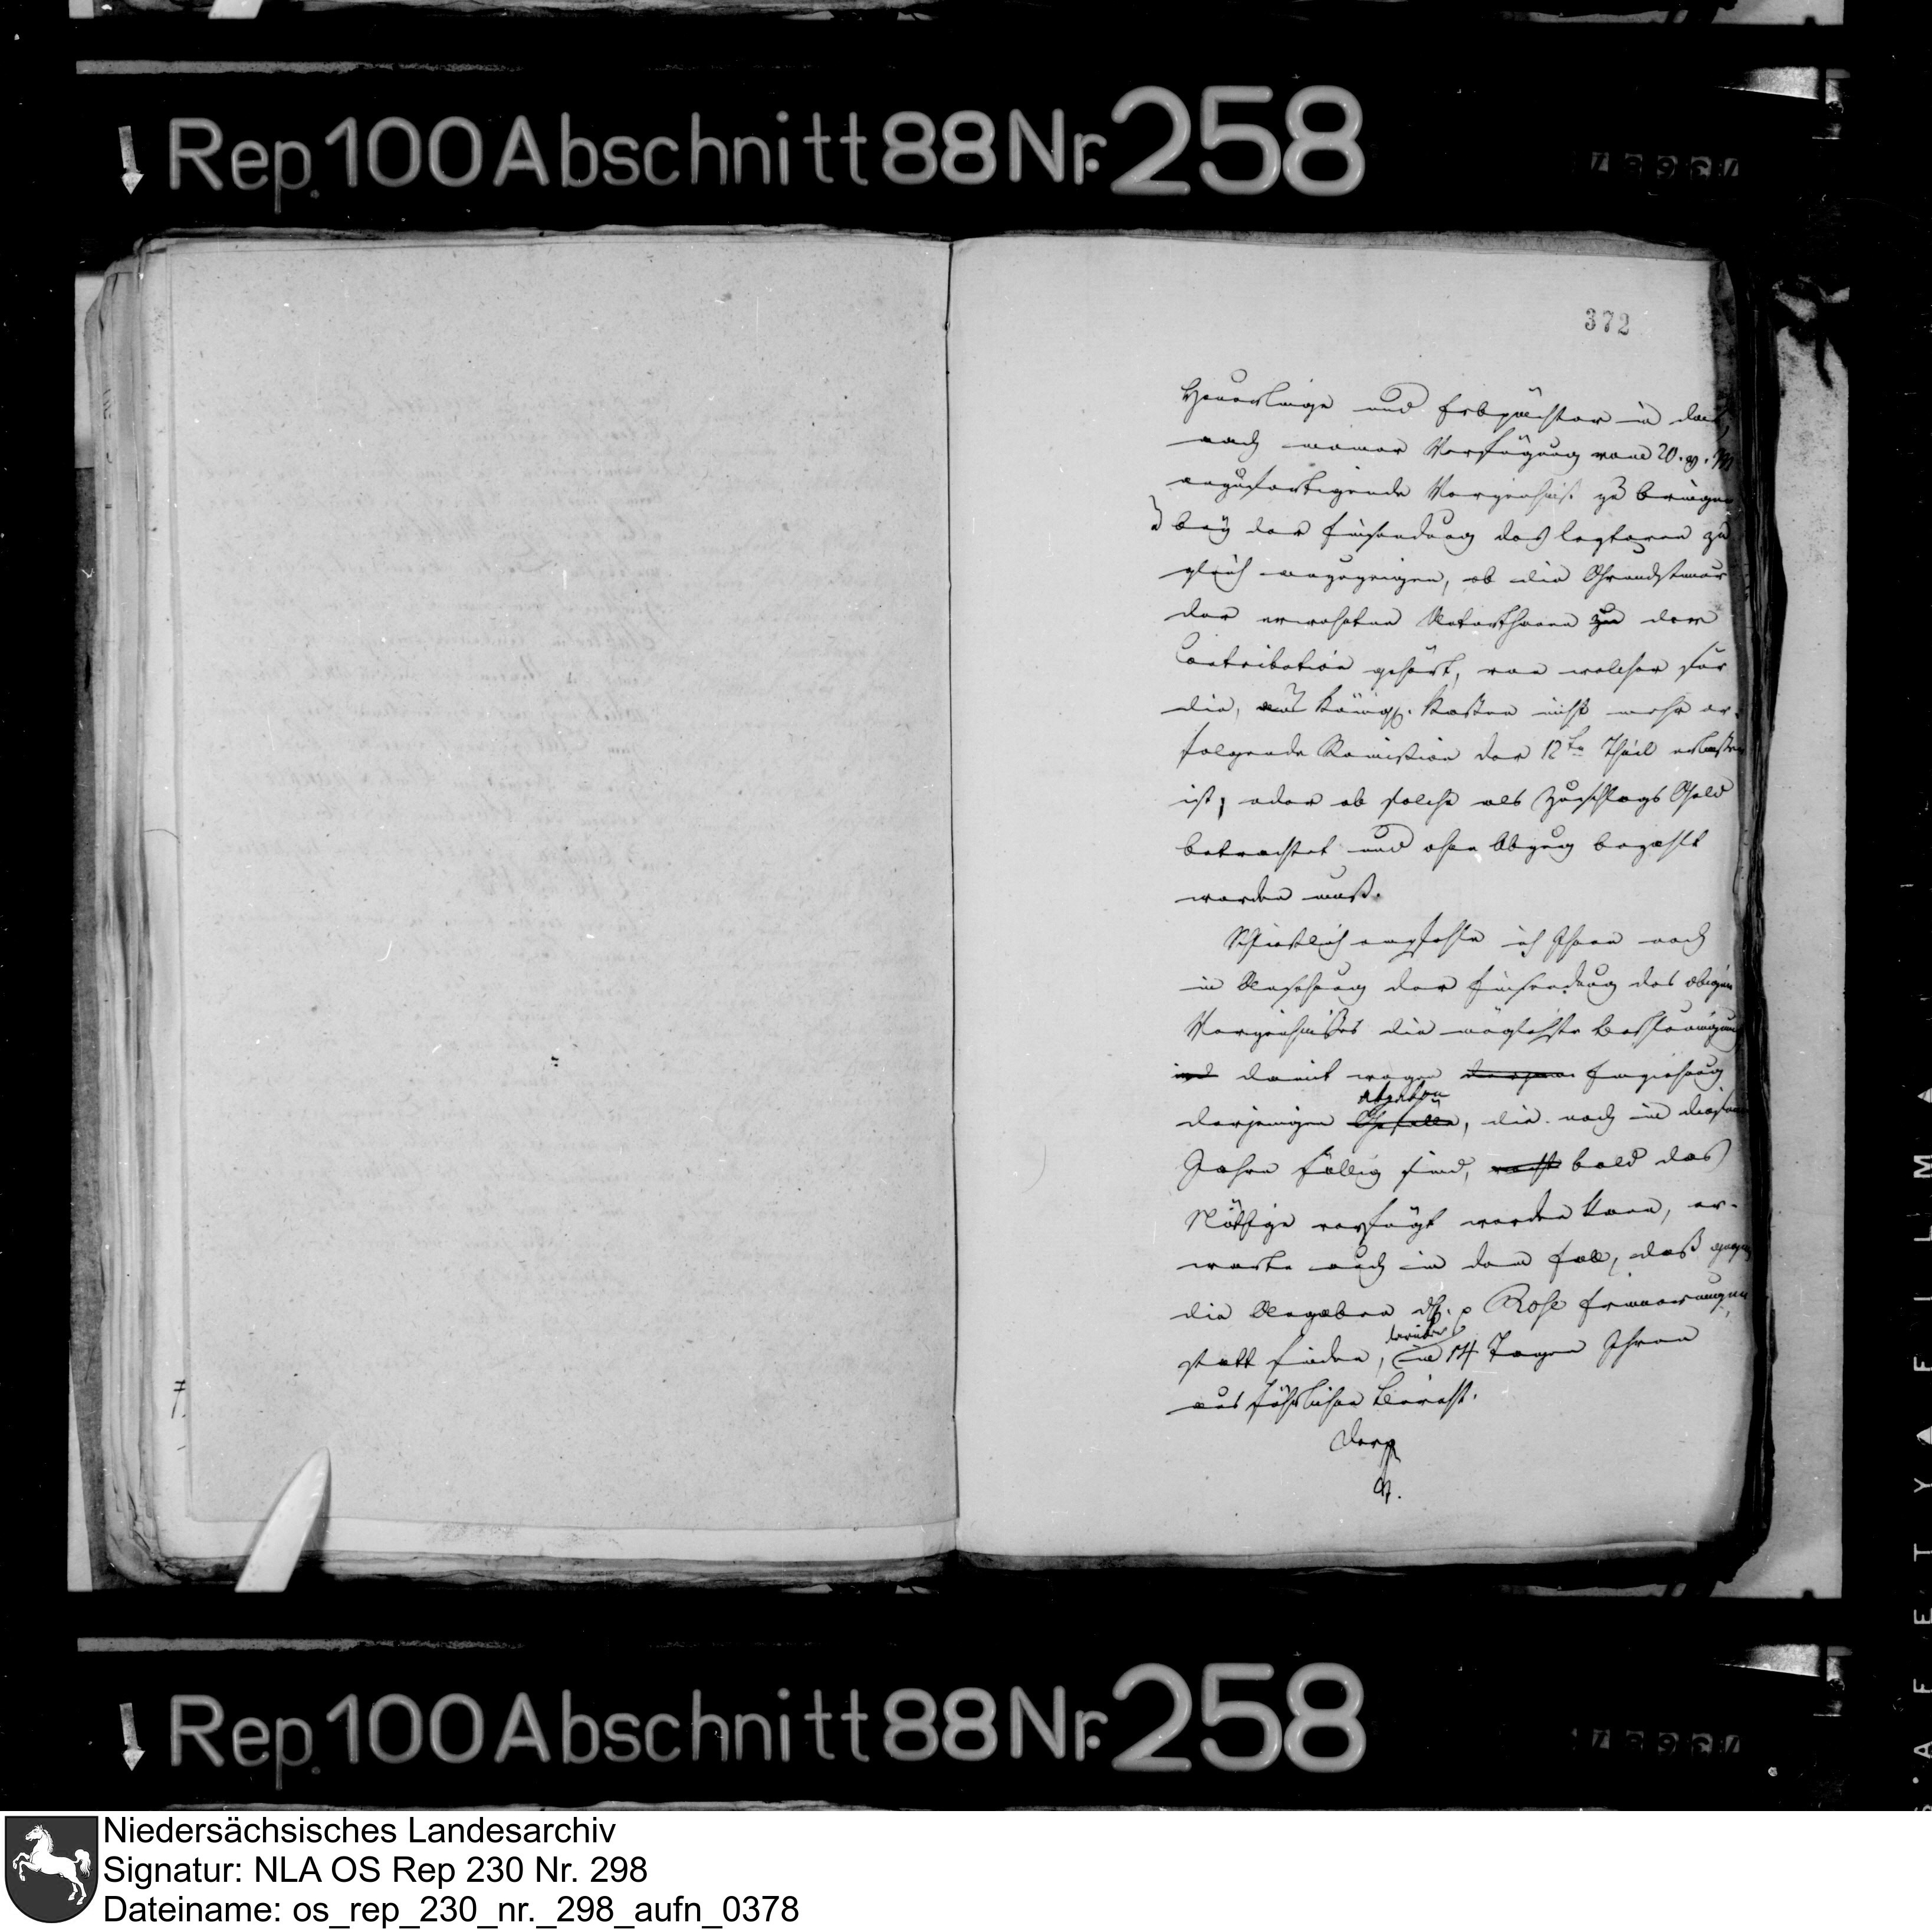 Rep. 100 Abschnitt 88 Nr. 258
372
Heuerlinge und Erbpächter in das,
nach meiner Verfügung vom 20. v. M
anzufertigende Verzeichniß zu bringen
bey der Einsendung des letzteren zu
gleich anzuzeigen, ob die Grundsteuer
der erwehnten Unterthanen zu der
Contribution gehört, von welcher für
die, aus Königl. Kassen nicht mehr er-
folgende Remission der 12te Theil erlassen
ist, oder ob solche als Zuschlags Geld
betrachtet und ohne Abzug bezahlt
werden muß.
Schließlich empfehle ich Ihnen noch
in Ansehung der Einsendung des obigen
Verzeichnisses die möglichste Beschleunigung
damit wegen Einziehung
abgaben
derjenigen Gefälle, die noch in diesem
Jahre fällig sind, recht bald das
Nöthige verfügt werden kann, er-
warte auch in dem Fall, daß gegen
die Angaben des p Rose Erinnerungen
darüber
statt finden, in 14 Tagen Ihren
ausführlichen Bericht.
Rep. 100 Abschnitt 88 Nr. 258
SAFETY FILM
Niedersächsisches Landesarchiv
Signatur: NLA OS Rep 230 Nr. 298
Dateiname: os_rep_230_nr._298_aufn_0378